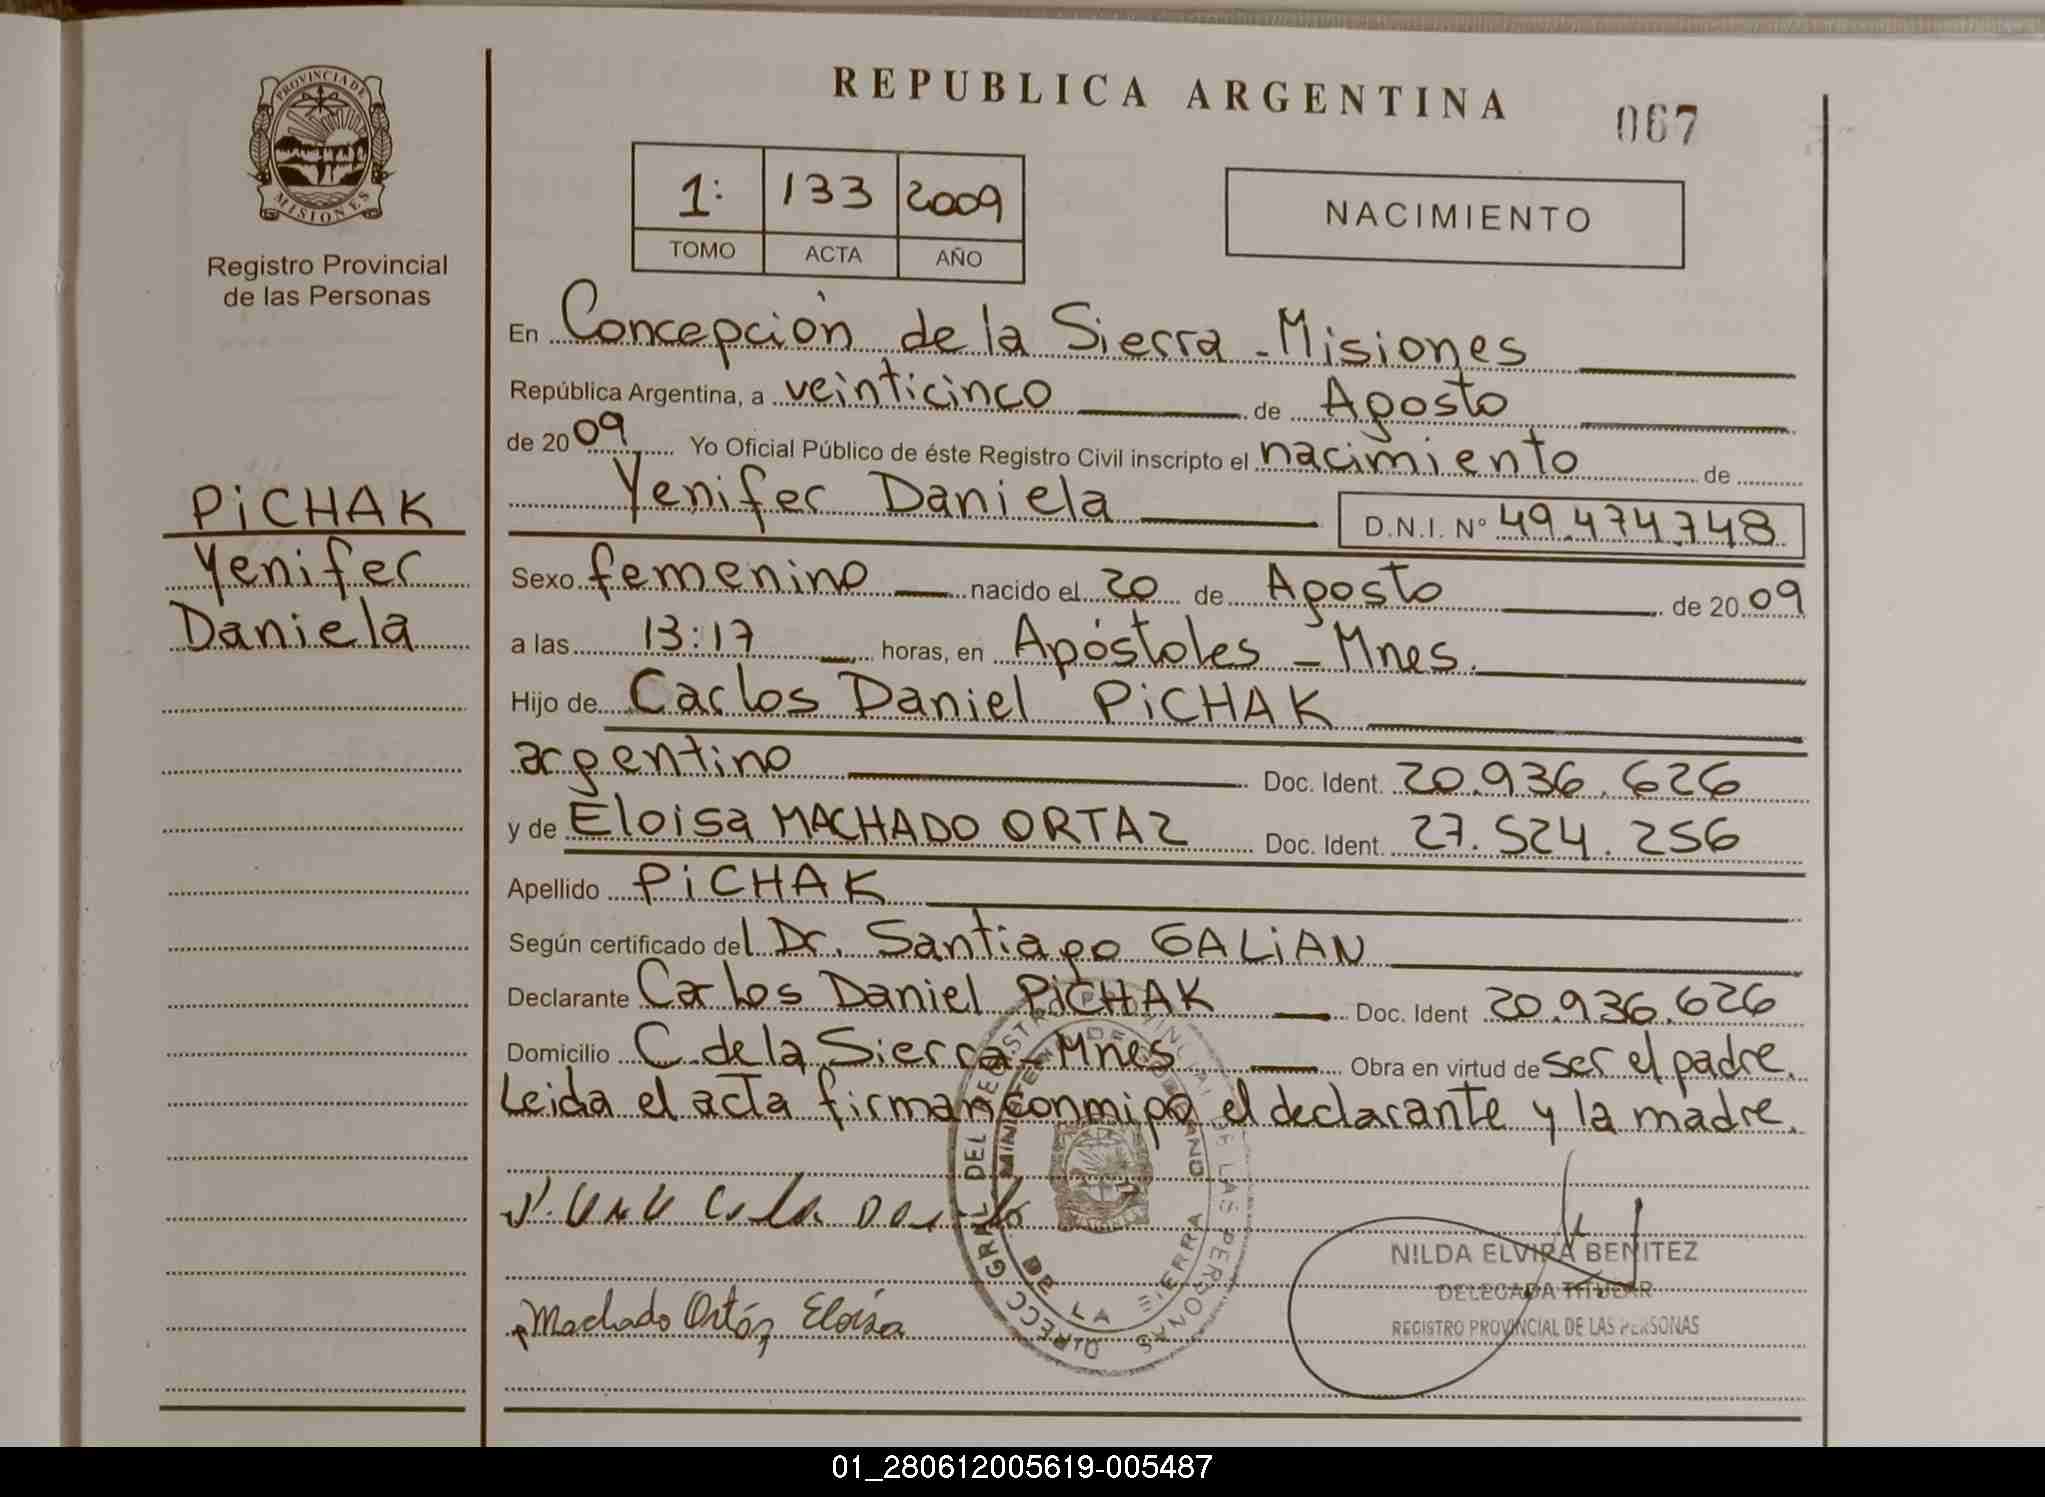 PROVINCIA DE
MISIONES
Registro Provincial
de las Personas
PiCHAK
Yenifer
Daniela
REPUBLICA ARGENTINA
067
1: 133 2009
TOMO ACTA AÑO
NACIMIENTO
En Concepción de la Sierra - Misiones
República Argentina, a veinticinco de Agosto
de 2009 Yo Oficial Público de éste Registro Civil inscripto el nacimiento de
Yenifer Daniela D.N.I. N° 49.474.748
Sexo femenino nacido el 20 de Agosto de 2009
a las 13:17 horas, en Apóstoles - Mnes.
Hijo de Carlos Daniel PiCHAK
argentino Doc. Ident. 20.936.626
y de Eloisa MACHADO ORTAZ Doc. Ident. 27.524.256
Apellido PiCHAK
Según certificado del Dr. Santiago GALiAN
Declarante Carlos Daniel PiCHAK Doc. Ident 20.936.626
Domicilio C. de la Sierra - Mnes Obra en virtud de ser el padre.
Leida el acta firman conmigo el declarante y la madre.
DIRECC GRAL DEL REGISTRO PROVINCIAL DE LAS PERSONAS
MINISTERIO DE GOBIERNO
DE LA SIERRA
Machado Ortáz Eloisa
NILDA ELVIRA BENITEZ
DELEGADA TITULAR
REGISTRO PROVINCIAL DE LAS PERSONAS
01_280612005619-005487